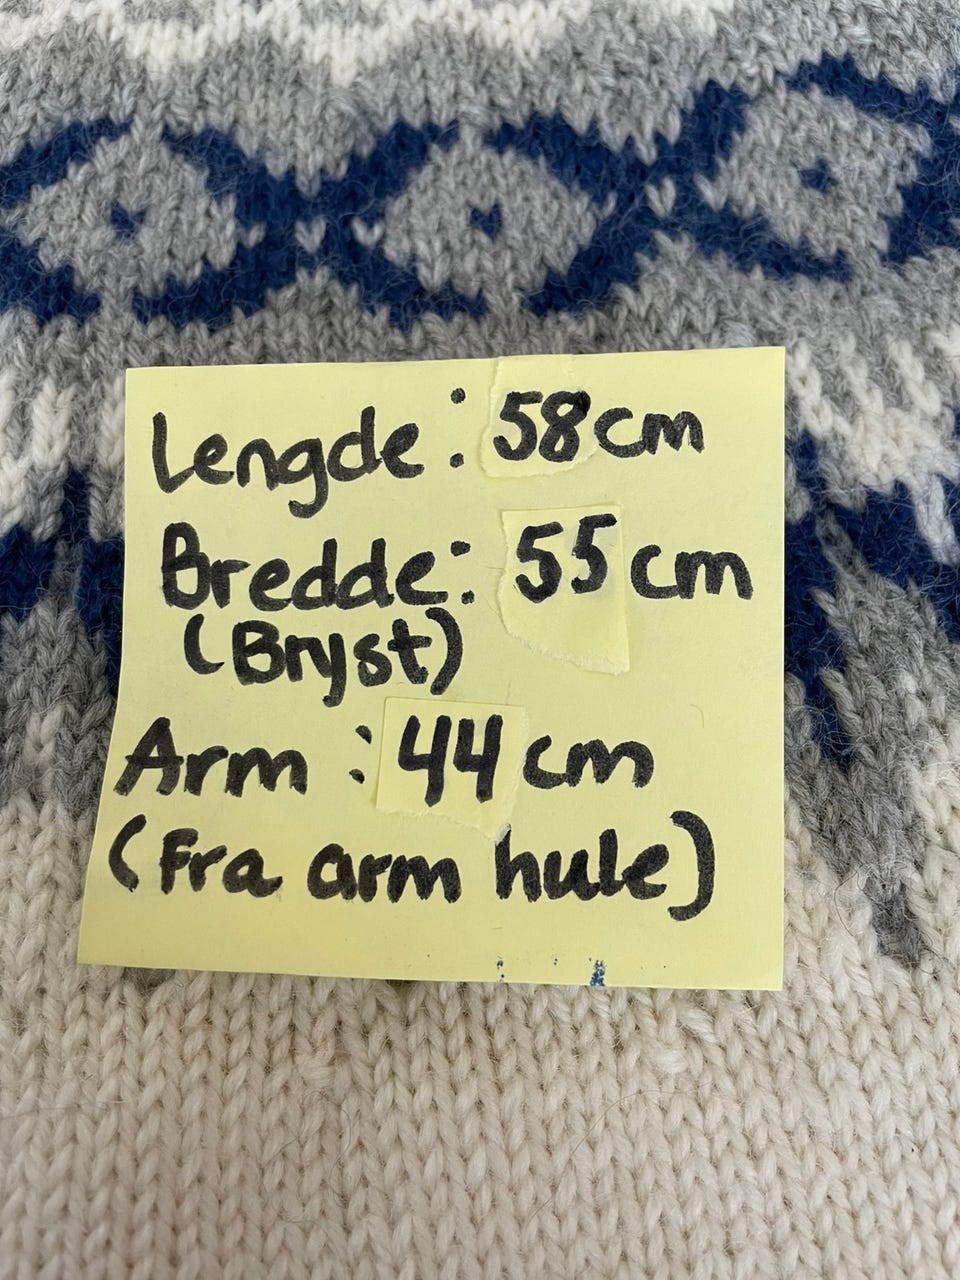 Lengde: 58cm
Bredde: 55cm
(Bryst)
Arm: 44cm
(Fra arm hule)